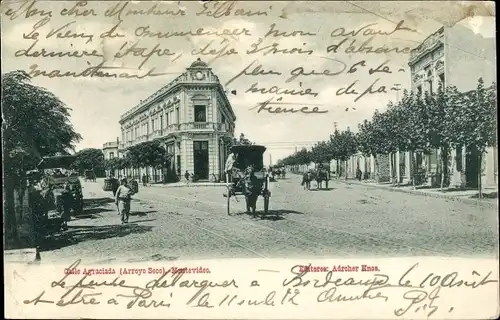 Mon cher Monsieur
Je viens de commencer mon avant
dernière étape, déjà 3 mois d'absence
maintenant plus que 6 se-
maines de pa-
tience
Calle Agraciada (Arroyo Seco). Montevideo.
Editores: Adroher Hnos.
Je pense débarquer à Bordeaux le 10 Août et
être à Paris le 11 ou le 12